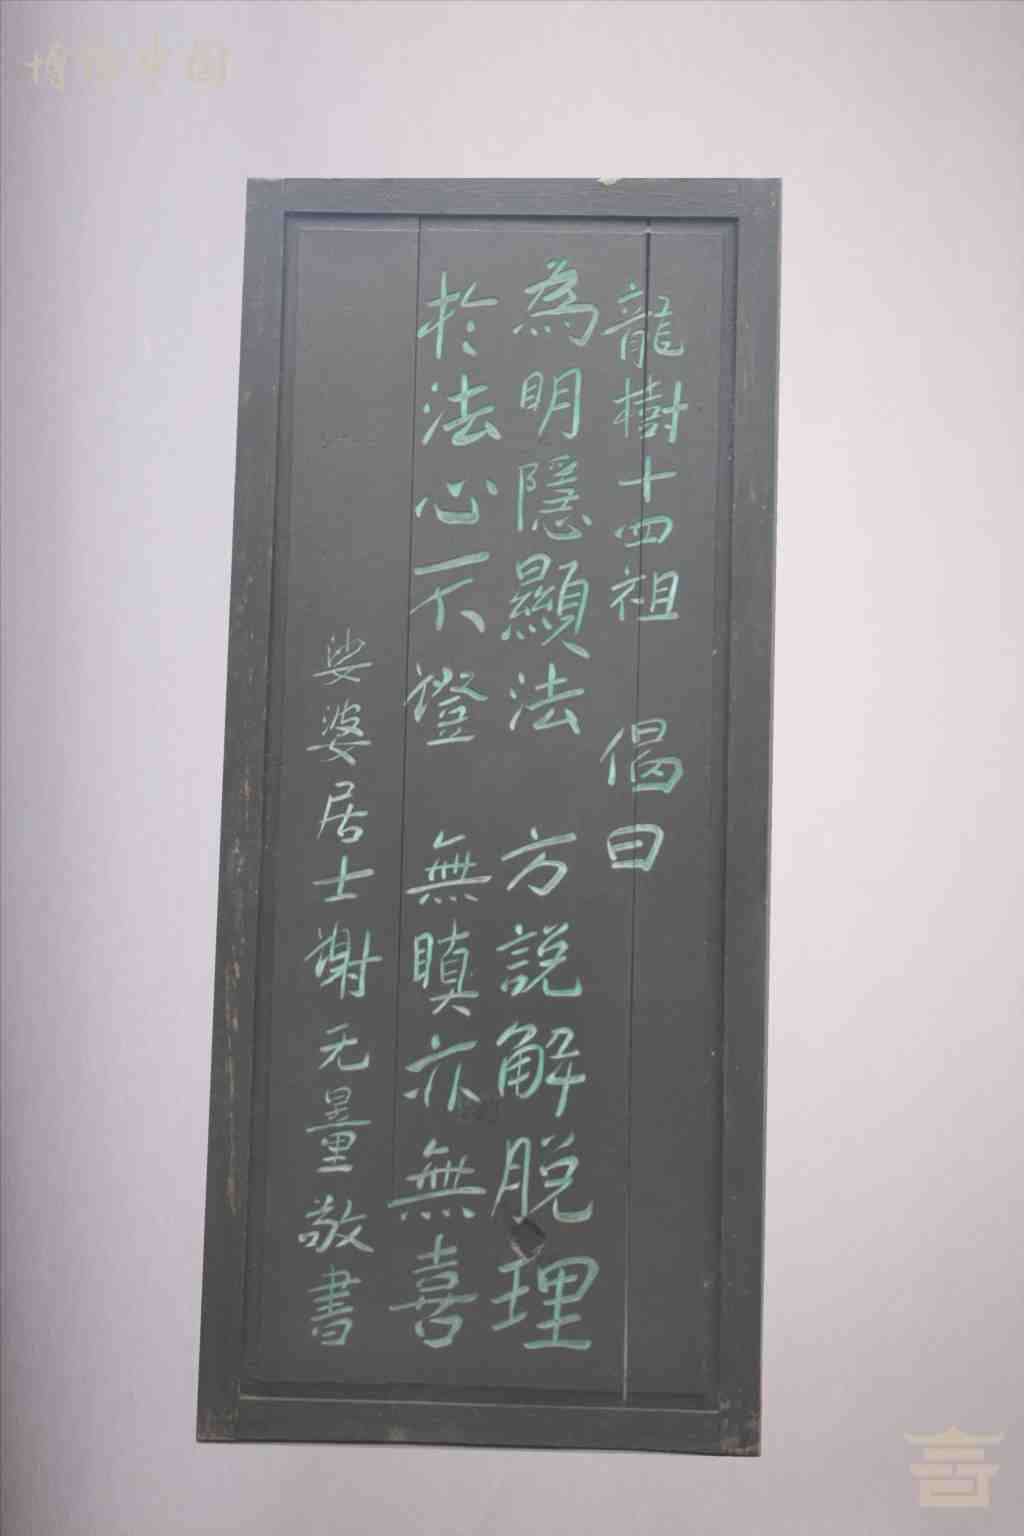 龍樹十四祖 偈曰
為明隱顯法 方説解脱理
於法心不證 無瞋亦無喜
娑婆居士謝无量敬書
博物中国